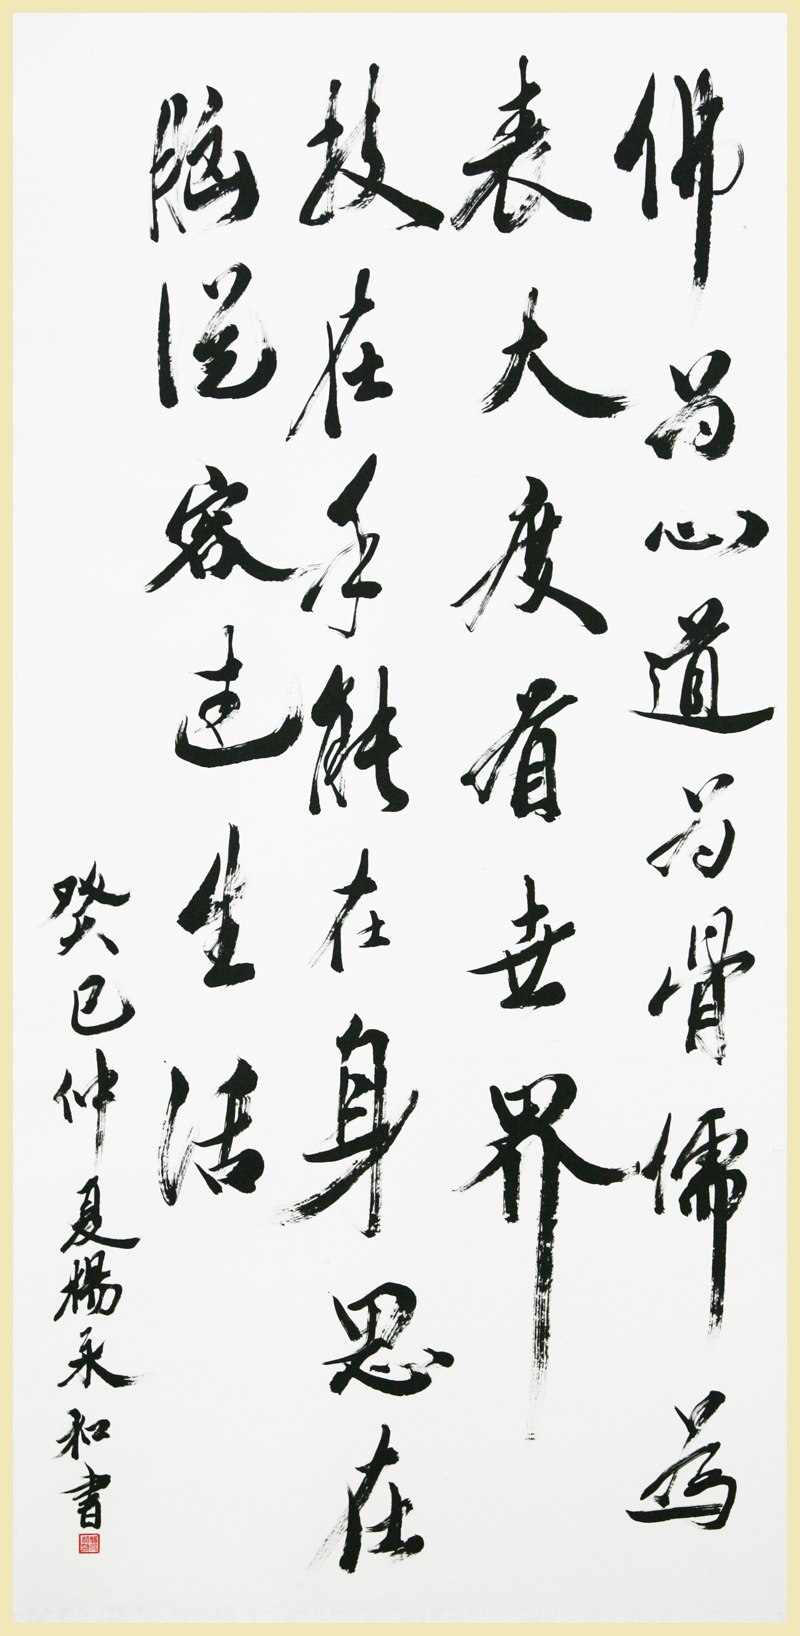 佛為心道為骨儒為
表大度看世界
技在手能在身思在
腦從容過生活
癸巳仲夏楊永和書